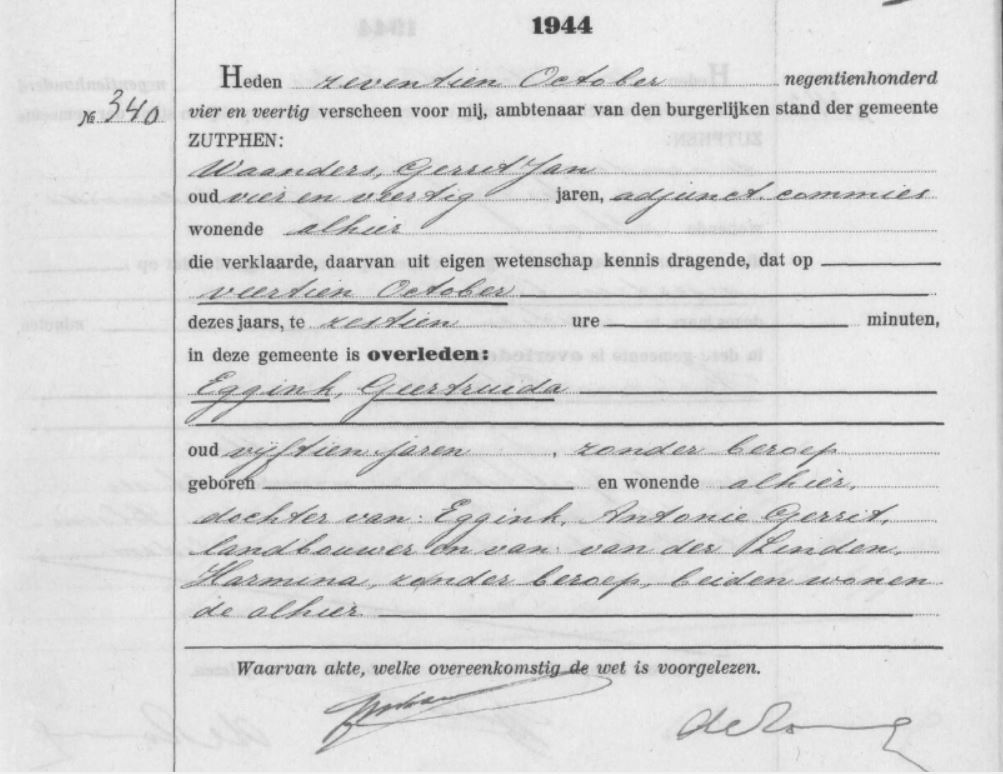 1944
Heden zeventien October negentienhonderd
№ 340 vier en veertig verscheen voor mij, ambtenaar van den burgerlijken stand der gemeente
ZUTPHEN:
Waanders, Gerrit Jan
oud vier en veertig jaren, adjunct. commies
wonende alhier
die verklaarde, daarvan uit eigen wetenschap kennis dragende, dat op
veertien October
dezes jaars, te zestien ure minuten,
in deze gemeente is overleden:
Eggink, Geertruida
oud vijftien jaren, zonder beroep
geboren en wonende alhier,
dochter van: Eggink, Antonie Gerrit,
landbouwer en van: van der Linden,
Harmina, zonder beroep, beiden wonen
de alhier
Waarvan akte, welke overeenkomstig de wet is voorgelezen.